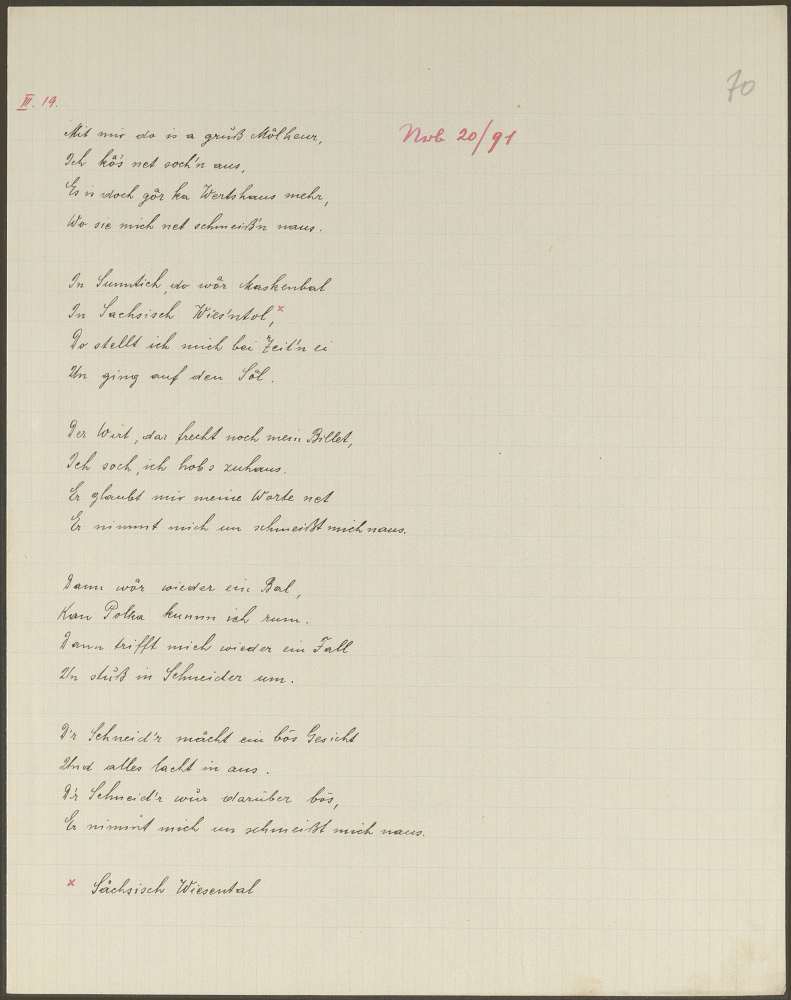 70
III. 19.
Nvb 20/91
Mit mir do is a grůß Mölheur,
Ich kö's net soch'n aus,
Es is doch gör ka Wertshaus mehr,
Wo sie mich net schmeiß'n naus.
In Sunntich, do wår Maskenbal
In Sachsisch Wies'ntol,x
Do stellt ich mich bei Zeit'n ei
Un ging auf den Söl.
Der Wirt, dar frecht noch mein Billet,
Ich soch, ich hobs zuhaus.
Er glaubt mir meine Worte net
Er nimmt mich un schmeißt mich naus.
Dann wår wieder ein Bal,
Kan Polka kumm ich rum.
Dann trifft mich wieder ein Fall
Un stůß in Schneider um.
D'r Schneid'r måcht ein bös Gesicht
Und alles lacht in aus.
D'r Schneid'r wůr darüber bös,
Er nimmt mich un schmeißt mich naus.
x Sächsisch Wiesental